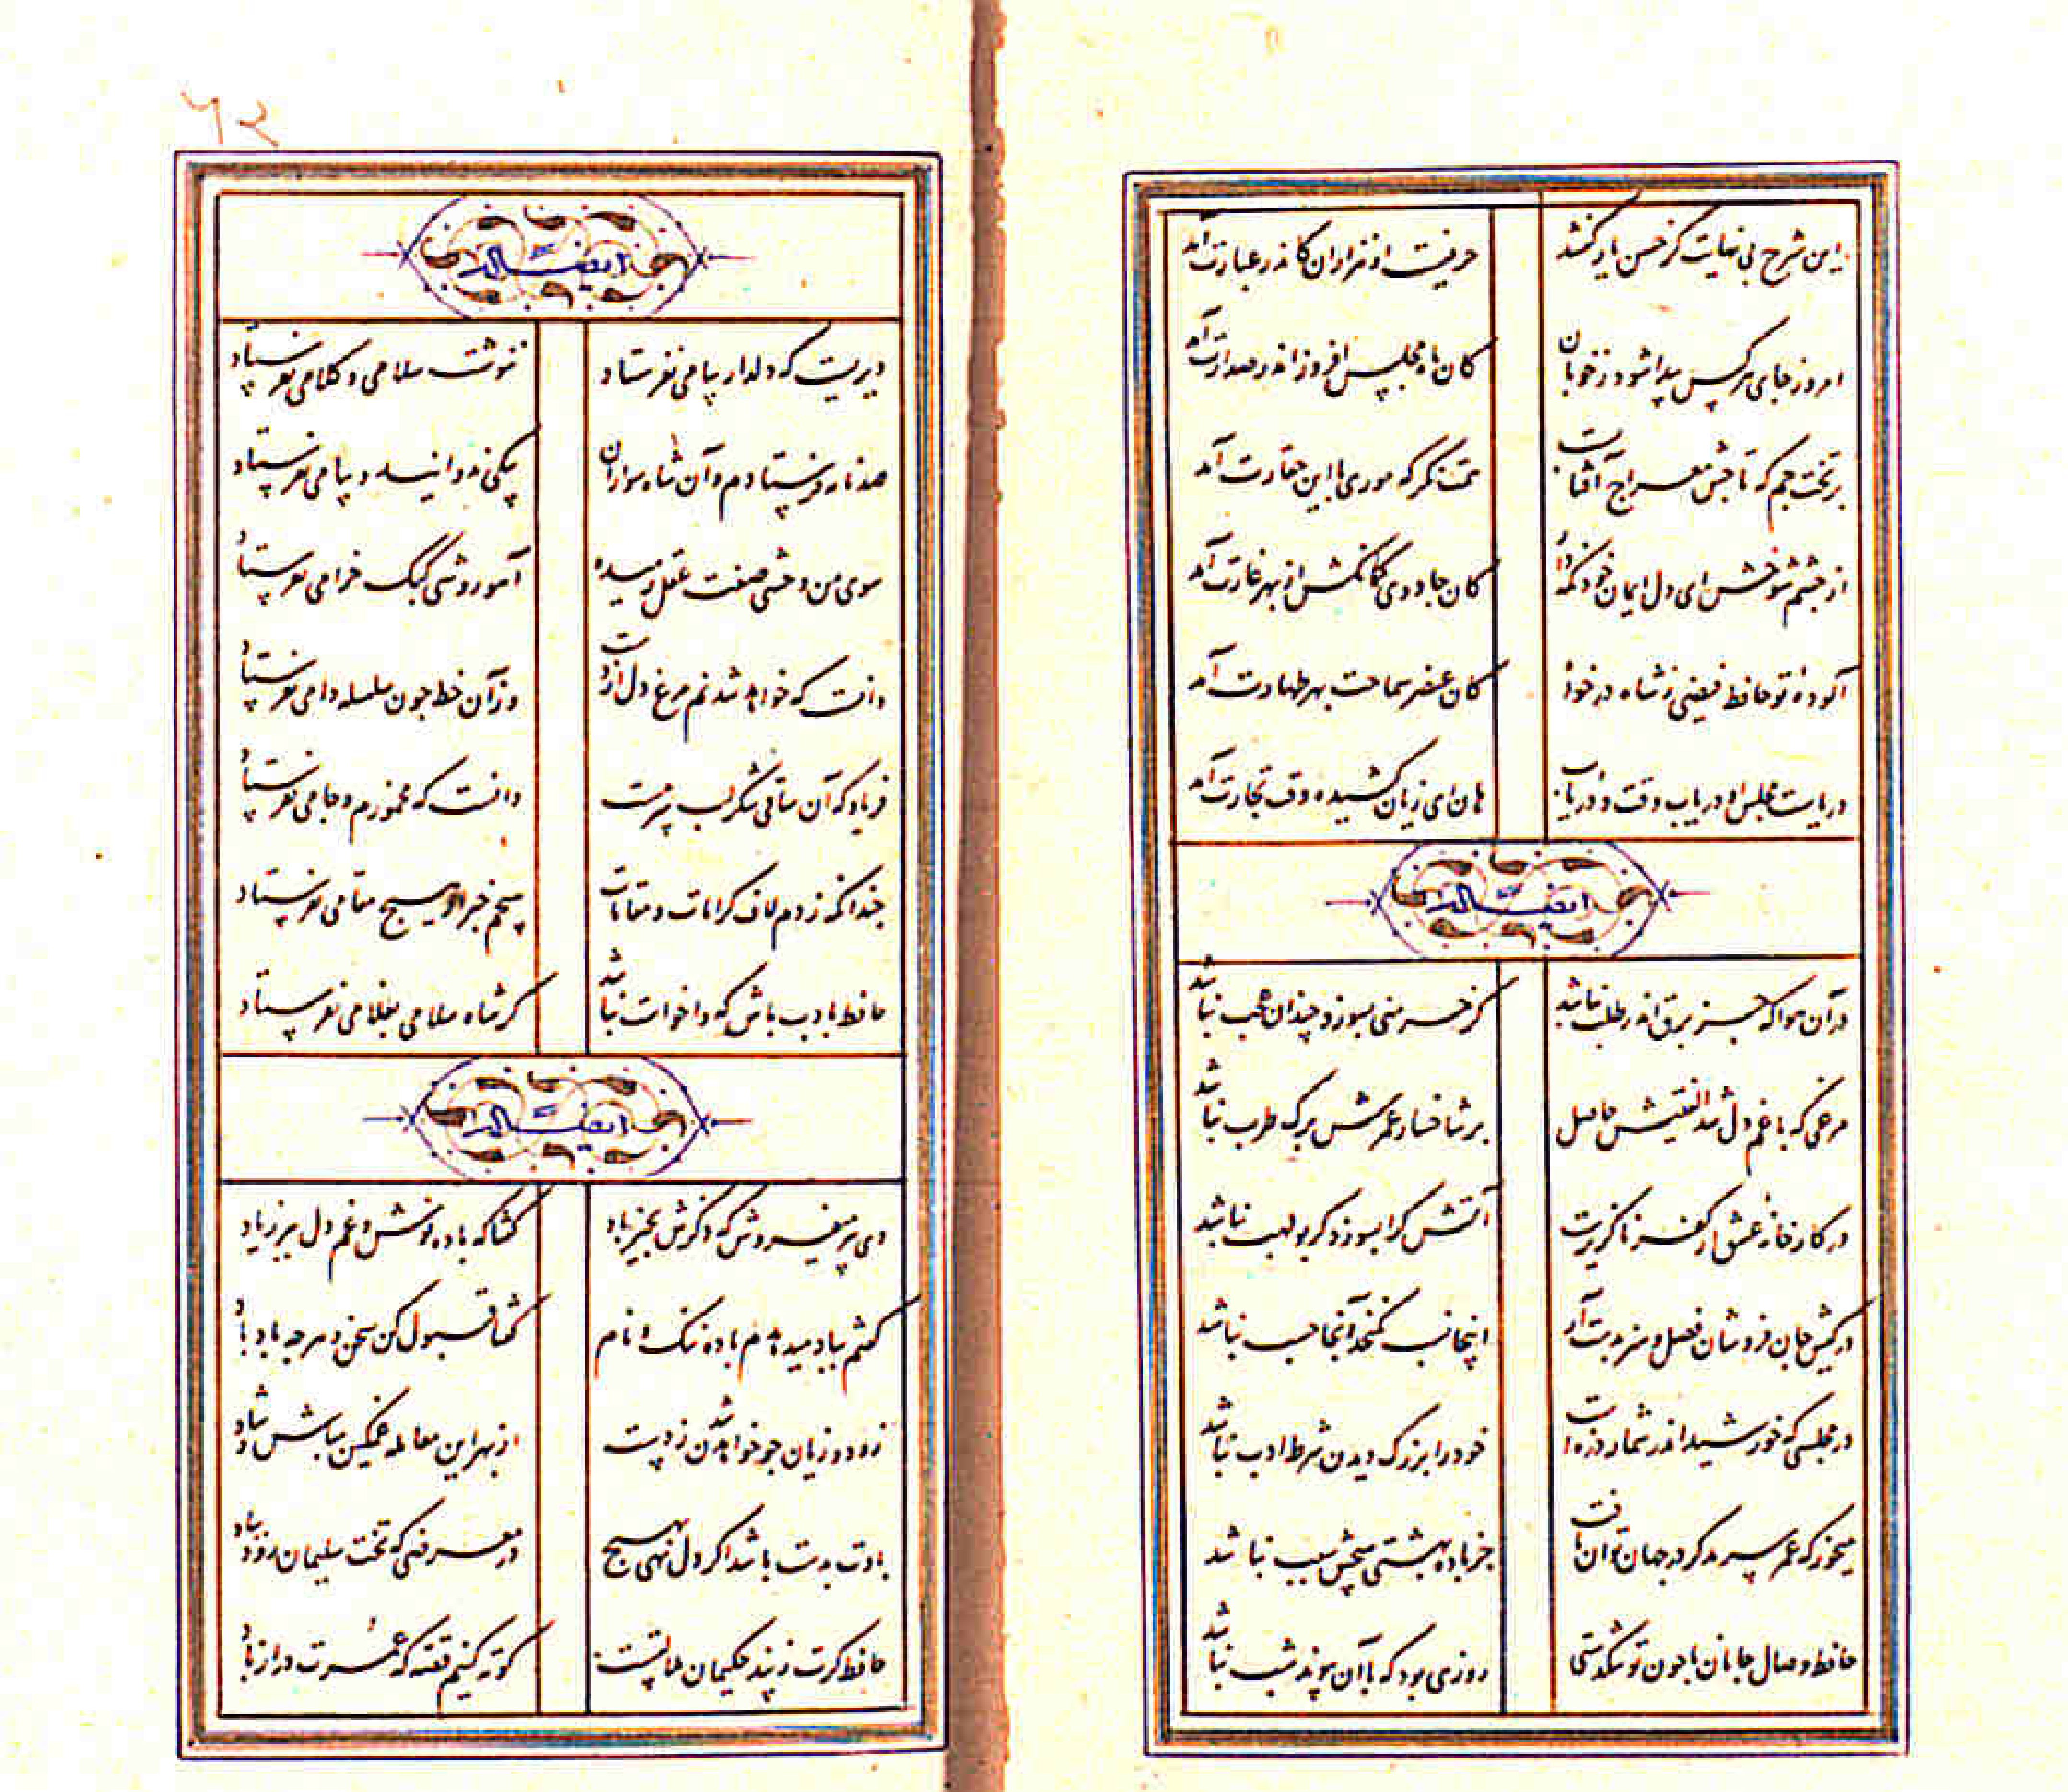 این شرح بی نهایت کز حسن یار گفتند
حرفیست از هزاران کاندر عبارت آمد
امروز جای هر کس پیدا شود ز خوبان
کان ماه مجلس افروز اندر صدارت آمد
بر تخت جم که تاجش معراج آفتابست
همت نگر که موری با این حقارت آمد
از چشم شوخش ای دل ایمان خود نگه دار
کان جادوی کمانکش از بهر غارت آمد
آلودهٔ تو حافظ فیضی ز شاه در خواه
کان عنصر سماحت بهر طهارت آمد
دریاست مجلس او دریاب وقت و دریاب
هان ای زیان کشیده وقت تجارت آمد
ایضا له
در آن هوا که جز برق اندر طلب نباشد
گر خرمنی بسوزد چندان عجب نباشد
مرغی که با غم دل شد الفتیش حاصل
بر شاخسار عمرش برگ طرب نباشد
در کارخانهٔ عشق از کفر ناگزیرست
آتش کرا بسوزد گر بولهب نباشد
در کیش جان فروشان فضل و هنر
اینجا نسب نگنجد آنجا حسب نباشد
در مجلسی که خورشید اندر شمار ذره است
خود را بزرگ دیدن شرط ادب نباشد
می خور که عمر سرمد گر در جهان توان یافت
جز باده بهشتی هیچش سبب نباشد
حافظ وصال جانان با چون تو تنگدستی
روزی بود که با آن پیوند شب نباشد
۶۲
ایضا له
دیریست که دلدار پیامی نفرستاد
ننوشت سلامی و کلامی نفرستاد
صد نامه فرستادم و آن شاه سواران
پیکی ندوانید و پیامی نفرستاد
سوی من وحشی صفت عقل رمیده
آهو روشی کبک خرامی نفرستاد
دانست که خواهد شدنم مرغ دل از دست
وز آن خط چون سلسله دامی نفرستاد
فریاد که آن ساقی شکر لب سرمست
دانست که مخمورم و جامی نفرستاد
چندانکه زدم لاف کرامات و مقامات
هیچم خبر از هیچ مقامی نفرستاد
حافظ بادب باش که واخواست نباشد
گر شاه سلامی بغلامی نفرستاد
ایضا له
دی پیر میفروش که ذکرش بخیر باد
گفتا که باده نوش و غم دل ببر ز یاد
گفتم بباد میدهدم باده ننگ و نام
گفتا قبول کن سخن و هر چه باد باد
زیان چو خواهد شدن ز دست
از بهر این معامله غمگین مباش و شاد
بادت بدست باشد اگر دل نهی بهیچ
در معرضی که تخت سلیمان رود بباد
حافظ گرت ز پند حکیمان ملالتست
کوته کنیم قصه که عمرت دراز باد